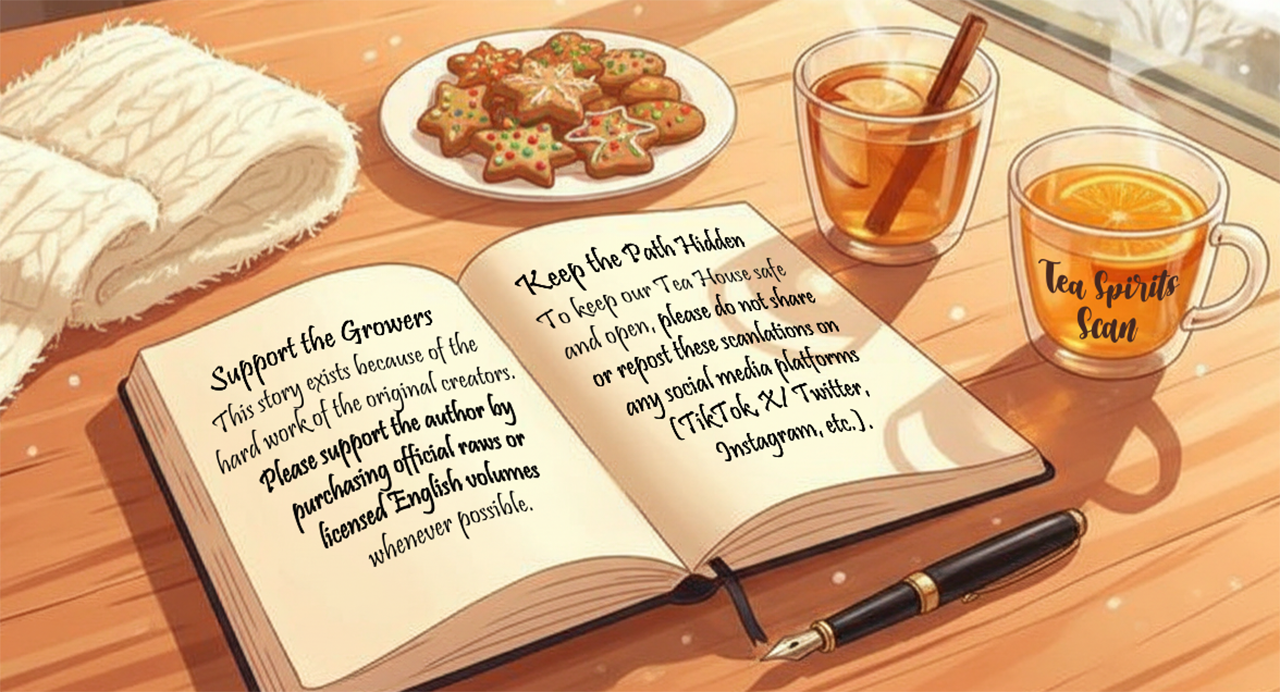 Support the Growers
This story exists because of the
hard work of the original creators.
Please support the author by
purchasing official raws or
licensed English volumes
whenever possible.
Keep the Path Hidden
To keep our Tea House safe
and open, please do not share
or repost these scanlations on
any social media platforms
(TikTok, X/ Twitter,
Instagram, etc.).
Tea Spirits
Scan